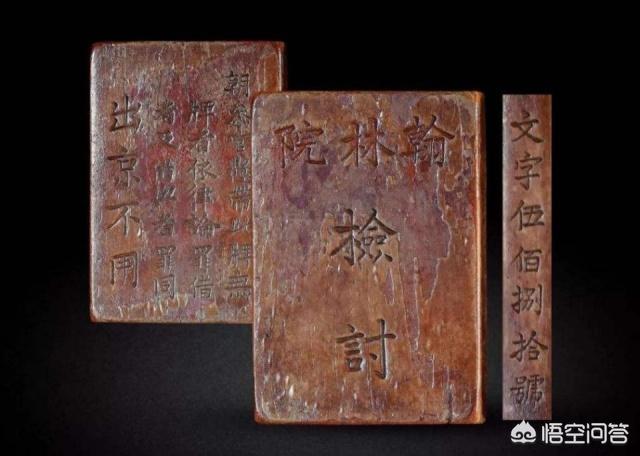 朝叅官懸帶此牌無
牌者依律論罪借
者及借與者罪同
出京不用
翰林院
檢討
文字伍佰捌拾號
悟空问答